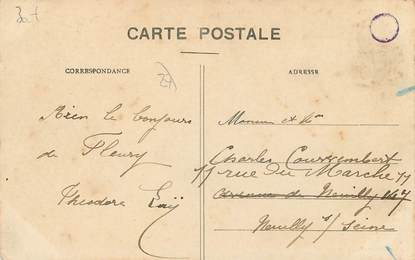 CARTE POSTALE
CORRESPONDANCE
ADRESSE
bonjours
de Fleury
Theodore
Monsieur et Mme
Charles
11 rue du Marché 11
Avenue de Neuilly 147
Neuilly s/ Seine